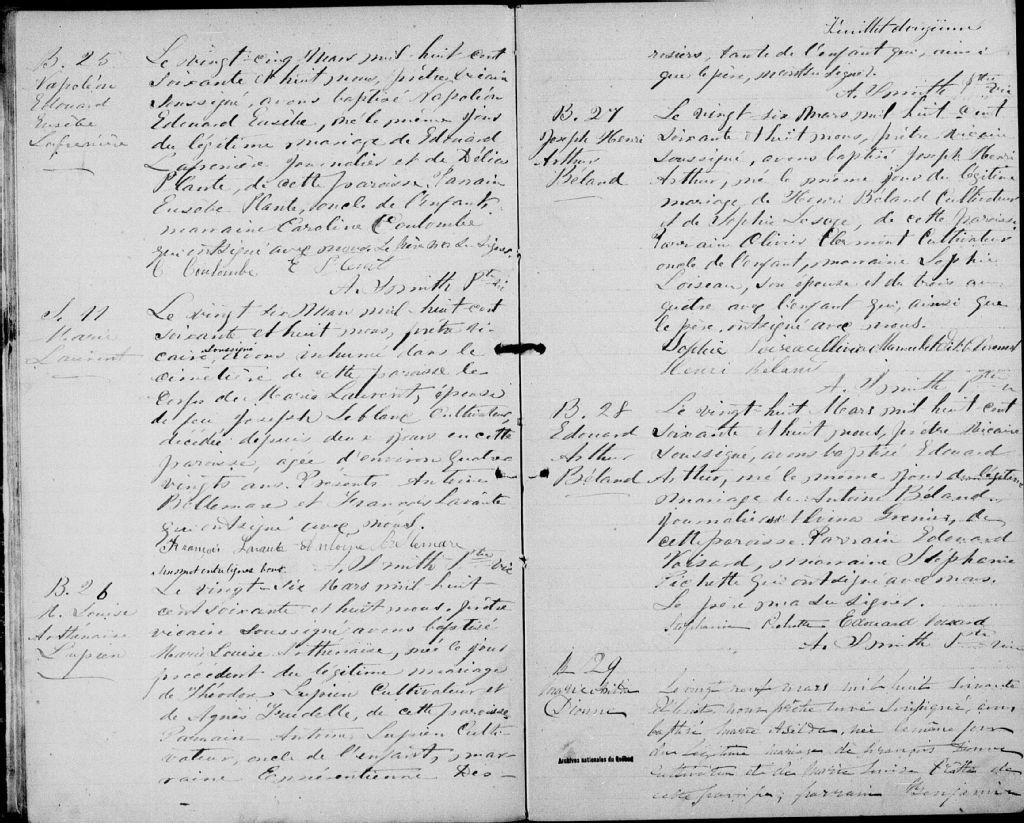 B. 25
Napoléon
Edouard
Eusèbe
Lafrenière
Le vingt-cinq Mars mil-huit cent
soixante et huit nous, prêtre vicaire
soussigné, avons baptisé Napoléon
Edouard Eusèbe, né le même jour
du légitime mariage de Edouard
Lafrenière journalier et de Délia
Plante, de cette paroisse Parrain
Eusèbe Plante, oncle de l'enfant,
marraine Caroline Coulombe
qui ont signé avec nous. Le père n'a su signer.
C Coulombe E Plant
A. Smith Ptre vic
S. 11
Marie
Laurent
Le vingt six Mars mil-huit cent
soixante et huit nous, prêtre vi-
caire soussigné avons inhumé dans le
cimetière de cette paroisse le
corps de Marie Laurent, épouse
de feu Joseph Leblanc Cultivateur,
décédée depuis deux jours en cette
paroisse, agée d'environ quatre
vingts ans. Présents Antoine
Bellemare et François Lavante
qui ont signé avec nous.
François Lavante Antoine Bellemare
Un mot entre lignes bon. A. Smith Ptre vic
B. 26
M. Louise
Arthénaise
Lupien
Le vingt-six Mars mil huit-
cent soixante et huit nous, prêtre
vicaire soussigné avons baptisé
Marie Louise Arthenaise, née le jour
précédent du légitime mariage
de Théodore Lupien Cultivateur et
de Agnès Trudelle, de cette paroisse.
Parrain Antoine Lupien Culti-
vateur, oncle de l'enfant, mar-
raine Des-
Feuillet douzième
rosiers, tante de l'enfant qui, ainsi
que le père, n'ont su signer.
A. Smith Ptre vic
B. 27
Joseph Henri
Arthur
Béland
Le vingt six Mars mil huit cent
soixante et huit nous, prêtre vicaire
soussigné, avons baptisé Joseph Henri
Arthur, né le même jour du légitime
mariage de Henri Béland Cultivateur
et de Sophie Lesage, de cette paroisse
Parrain Olivier Clermont Cultivateur
oncle de l'enfant, marraine Sophie
Loiseau, son épouse
avec l'enfant qui, ainsi que
le père, ont signé avec nous.
Sophie Loiseau Olivier
Henri Béland
A. Smith Ptre v
B. 28
Edouard
Arthur
Béland
Le vingt huit Mars mil huit cent
soixante et huit nous, prêtre vicaire
soussigné, avons baptisé Edouard
Arthur, né le même jour du légitime
mariage de Antoine Béland
journalier et Alvina Grenier, de
cette paroisse. Parrain Edouard
Voisard, marraine Stéphanie
Pichette qui ont signé avec nous.
Le père n'a su signer.
Stéphanie Pichette Edouard Voisard
A. Smith Ptre vic
B. 29
Marie
Dionne
Le vingt neuf mars mil huit soixante
et huit nous prêtre curé soussigné, avons
baptisé Marie née le même jour
du légitime mariage de François Dionne
cultivateur et de Marie Louise de
cette paroisse; parrain Benjamin
Archives nationales du Québec